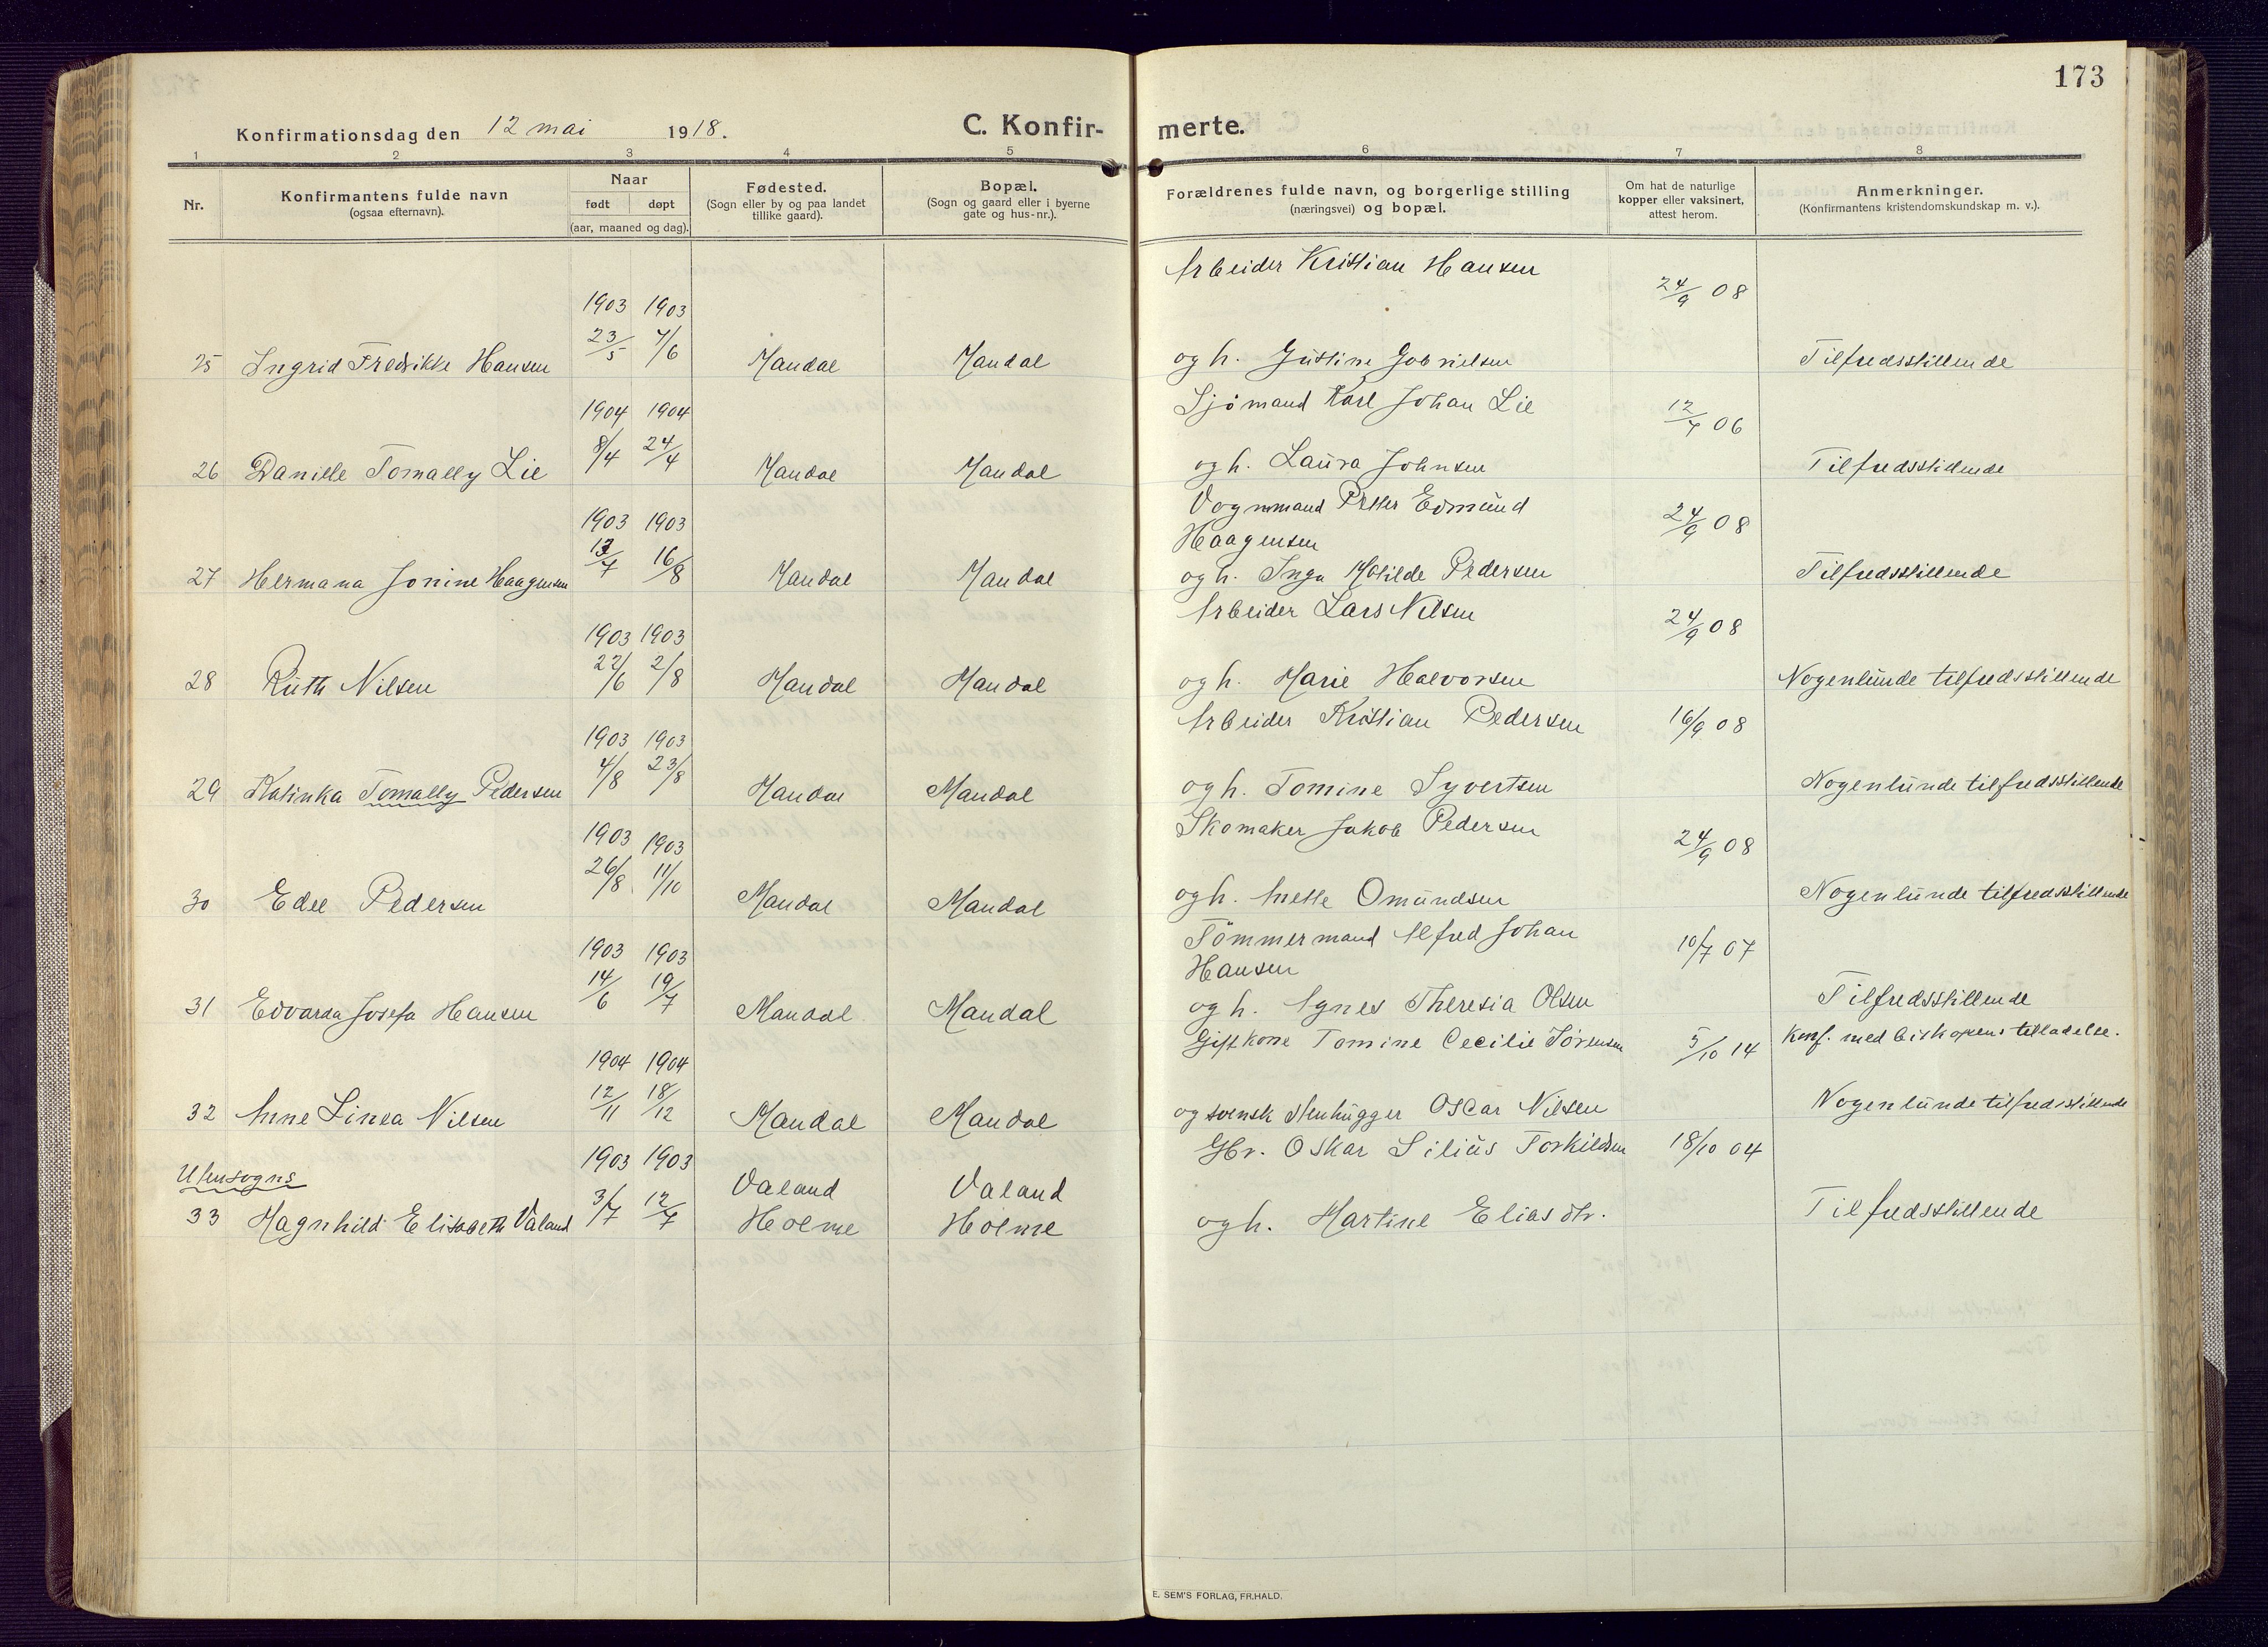 173
Konfirmationsdag den 12 mai 1918.
C. Konfir-
merte.
1 2 3 4 5 6 7 8
Nr.
Konfirmantens fulde navn
(ogsaa efternavn).
Naar
født døpt
(aar, maaned og dag).
Fødested.
(Sogn eller by og paa landet
tillike gaard).
Bopæl.
(Sogn og gaard eller i byerne
gate og hus-nr.).
Forældrenes fulde navn, og borgerlige stilling
(næringsvei) og bopæl.
Om hat de naturlige
kopper eller vaksinert,
attest herom.
Anmerkninger.
(Konfirmantens kristendomskundskap m. v.).
Arbeider Kristian Hansen
24/9 08
1903 1903
23/5 7/6
25 Ingrid Fredrikke Hansen Mandal Mandal og h. Gustine Gabrielsen Tilfredsstillende
1904 1904 Sjömand Karl Johan Lie
12/7 06
8/4 24/4
26 Danille Tomally Lie Mandal Mandal og h. Laura Johnsen Tilfredsstillende
1903 1903 Vognmand Petter Edmund
24/9 08
Haagensen
13/7 16/8
27 Hermana Jonine Haagensen Mandal Mandal og h. Inga Matilde Pedersen Tilfredsstillende
Arbeider Lars Nilsen
24/9 08
1903 1903
22/6 2/8
28 Ruth Nilsen Mandal Mandal og h. Marie Halvorsen Nogenlunde tilfredsstillende
1903 1903 Arbeider Kristian Pedersen 16/9 08
4/8 23/8
29 Kalinka Tomally Pedersen Mandal Mandal og h. Tomine Syvertsen Nogenlunde tilfredsstillende
1903 1903 Skomaker Jakob Pedersen
24/9 08
26/8 11/10
30 Edel Pedersen Mandal Mandal og h. Mette Omundsen Nogenlunde tilfredsstillende
1903 1903 Tömmermand Alfred Johan
10/7 07
Hansen
14/6 19/7
31 Edvarda Josefa Hansen Mandal Mandal og h. Agnes Theresia Olsen Tilfredsstillende
1904 1904 Gift kone Tomine Cecilie Sørensen 5/10 14 Konf. med biskopens tilladelse.
12/11 18/12
32 Anne Linea Nilsen Mandal Mandal og svensk stenhugger Oscar Nilsen Nogenlunde tilfredsstillende
1903 1903 Gbr. Oskar Silius Torkildsen 18/10 04
Utensogns
3/7 12/7 Valand Valand
33 Magnhild Elisabeth Valand Holme Holme og h. Martine Eliasdtr. Tilfredsstillende
E. SEM'S FORLAG, FR.HALD.